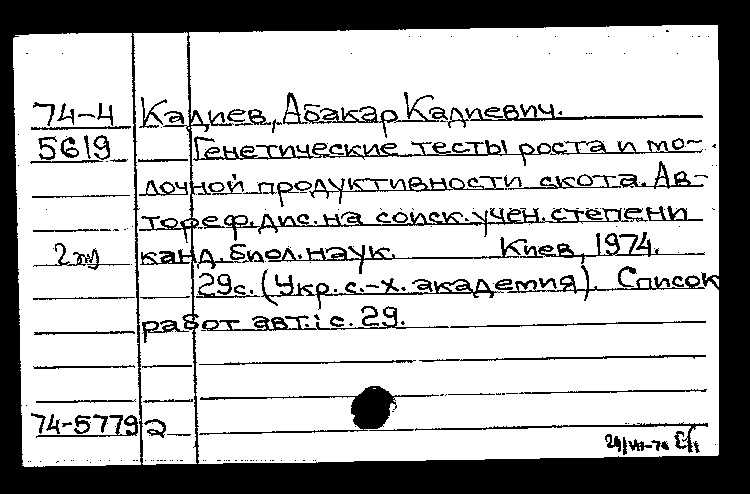 74-4 Кадиев, Абакар Кадиевич.
5619 Генетические тесты роста и мо-
лочной продуктивности скота. Ав-
тореф. дис. на соиск. учен. степени
канд. биол. наук. Киев, 1974.
29с. (Укр. с.-х. академия). Список
работ авт.: с. 29.
74-5779 2